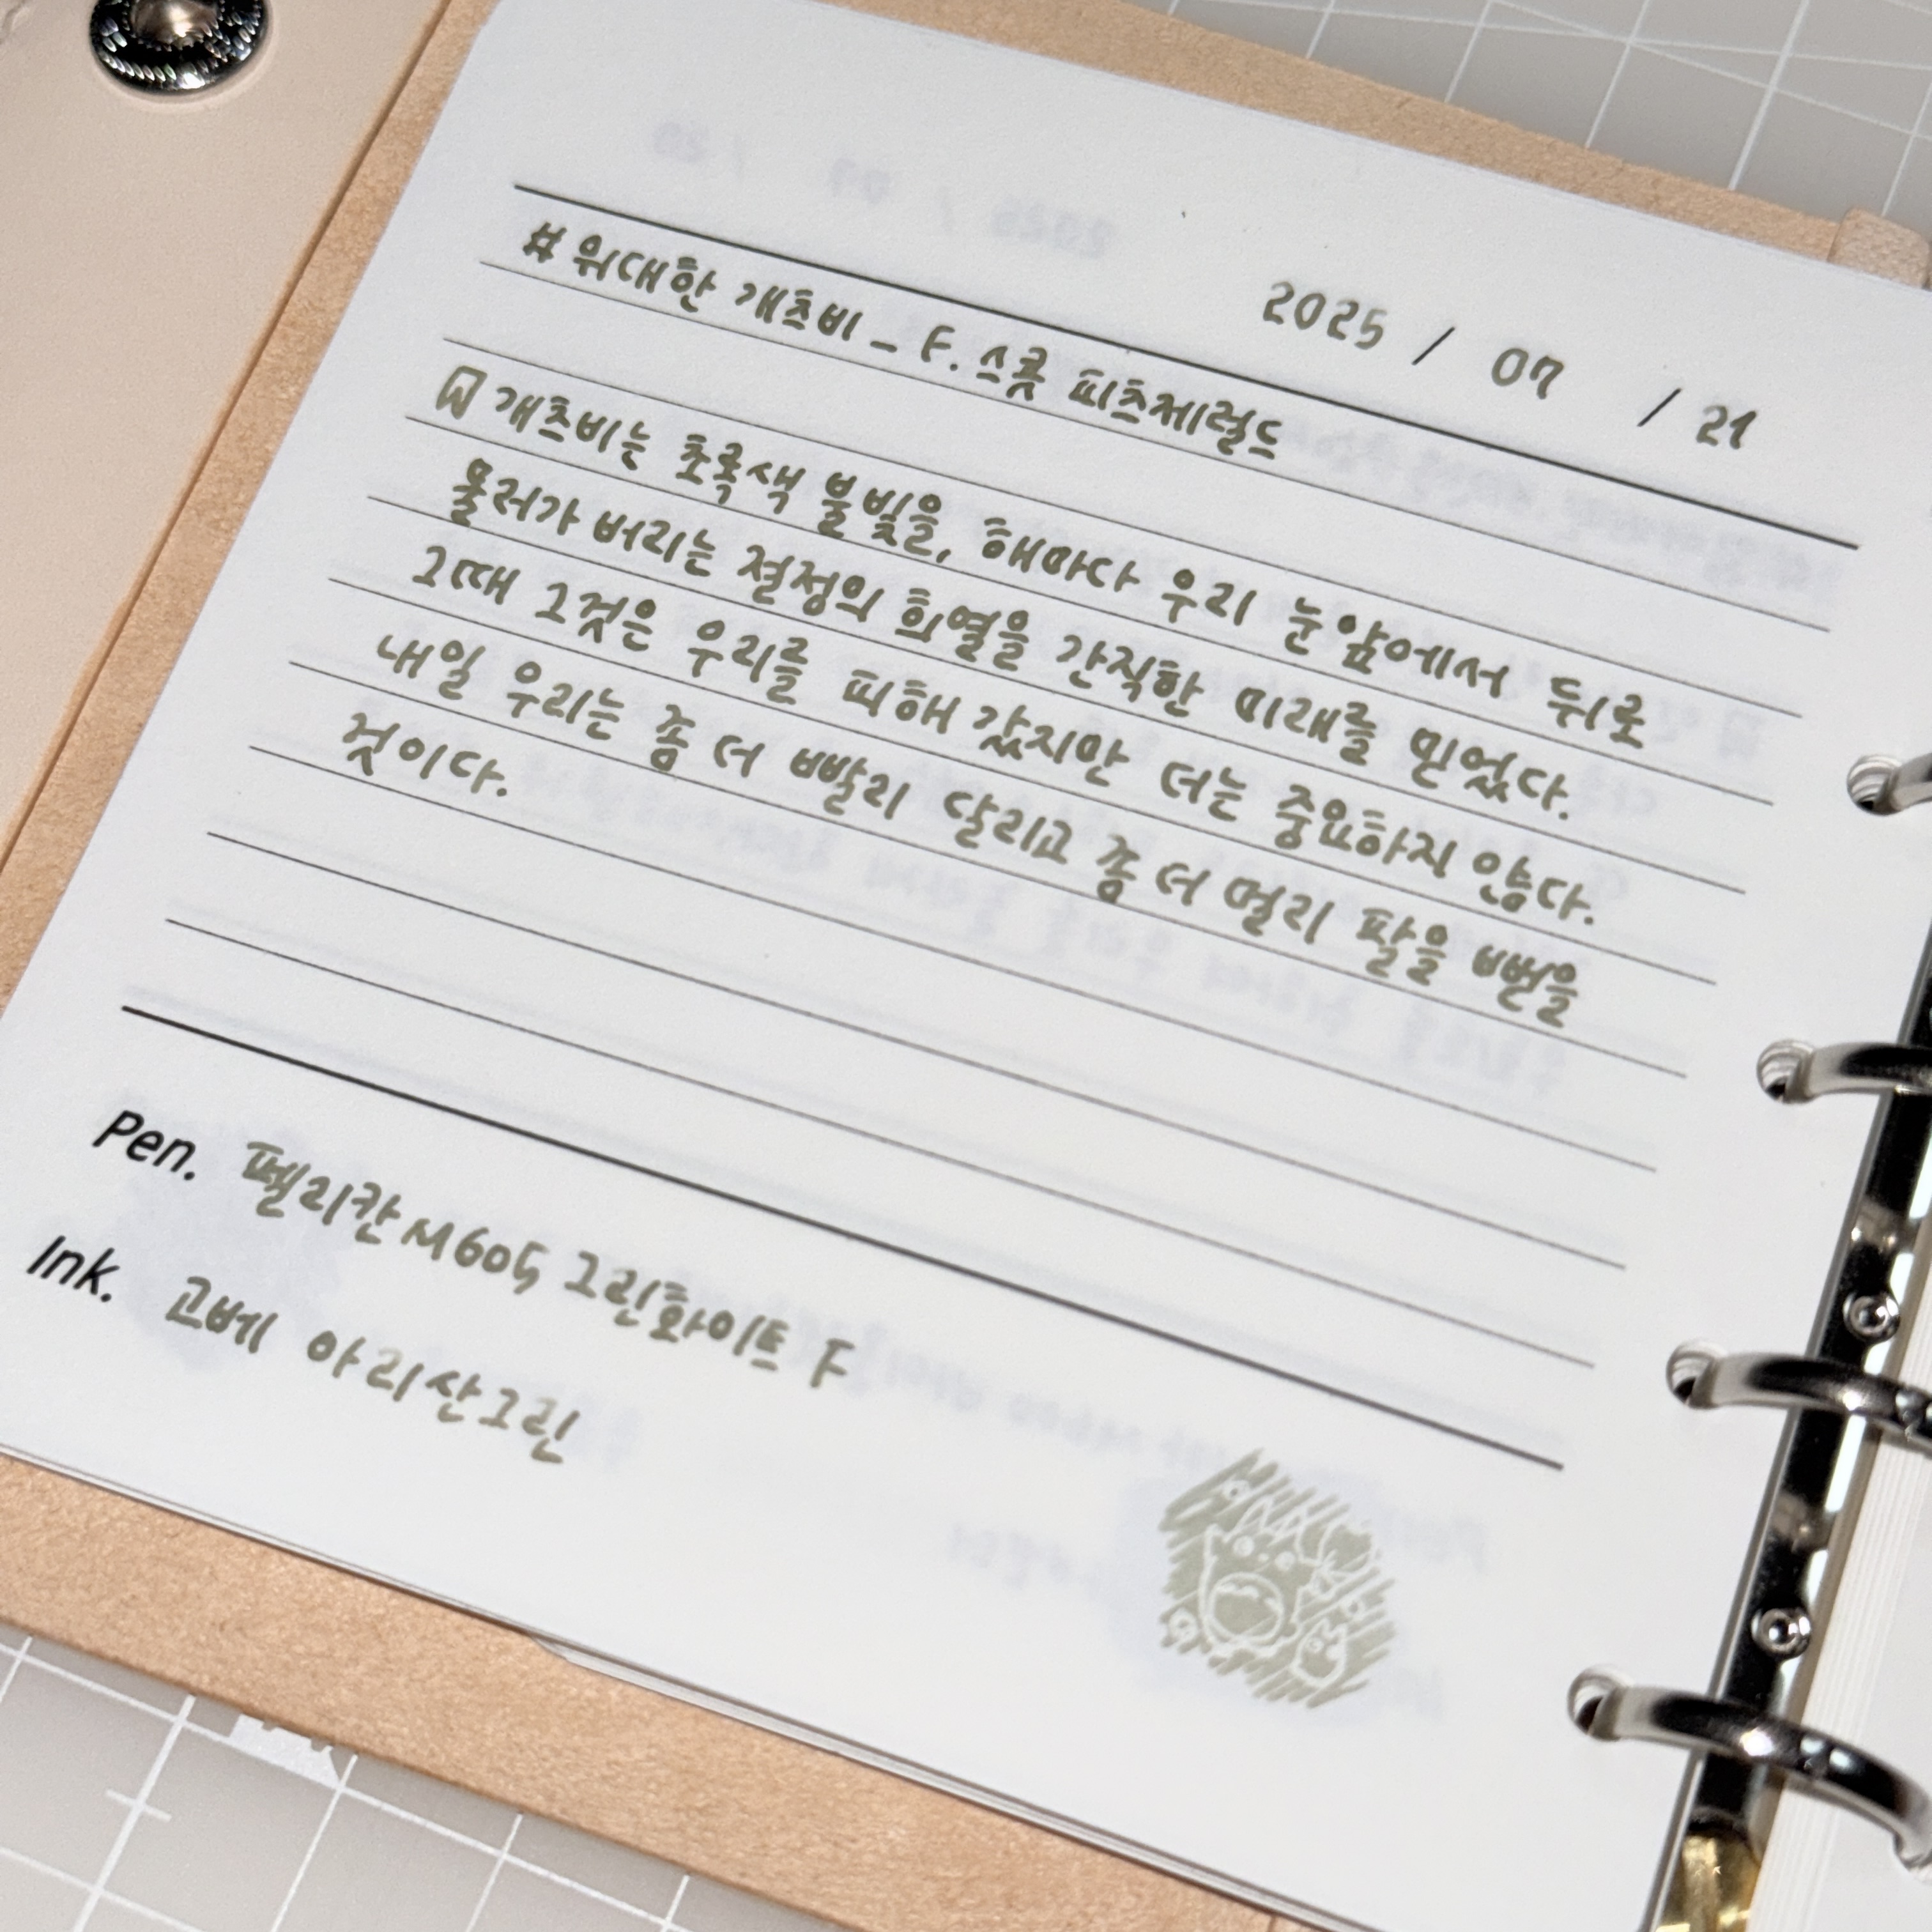 2025 / 07 / 21
# 위대한 개츠비 - F. 스콧 피츠제럴드
개츠비는 초록색 불빛을, 해마다 우리 눈앞에서 뒤로
물러가 버리는 절정의 희열을 간직한 미래를 믿었다.
그때 그것은 우리를 피해 갔지만 더는 중요하지 않다.
내일 우리는 좀 더 빨리 달리고 좀 더 멀리 팔을 뻗을
것이다.
Pen. 펠리칸 M605 그린화이트 F
Ink. 고베 아리산그린